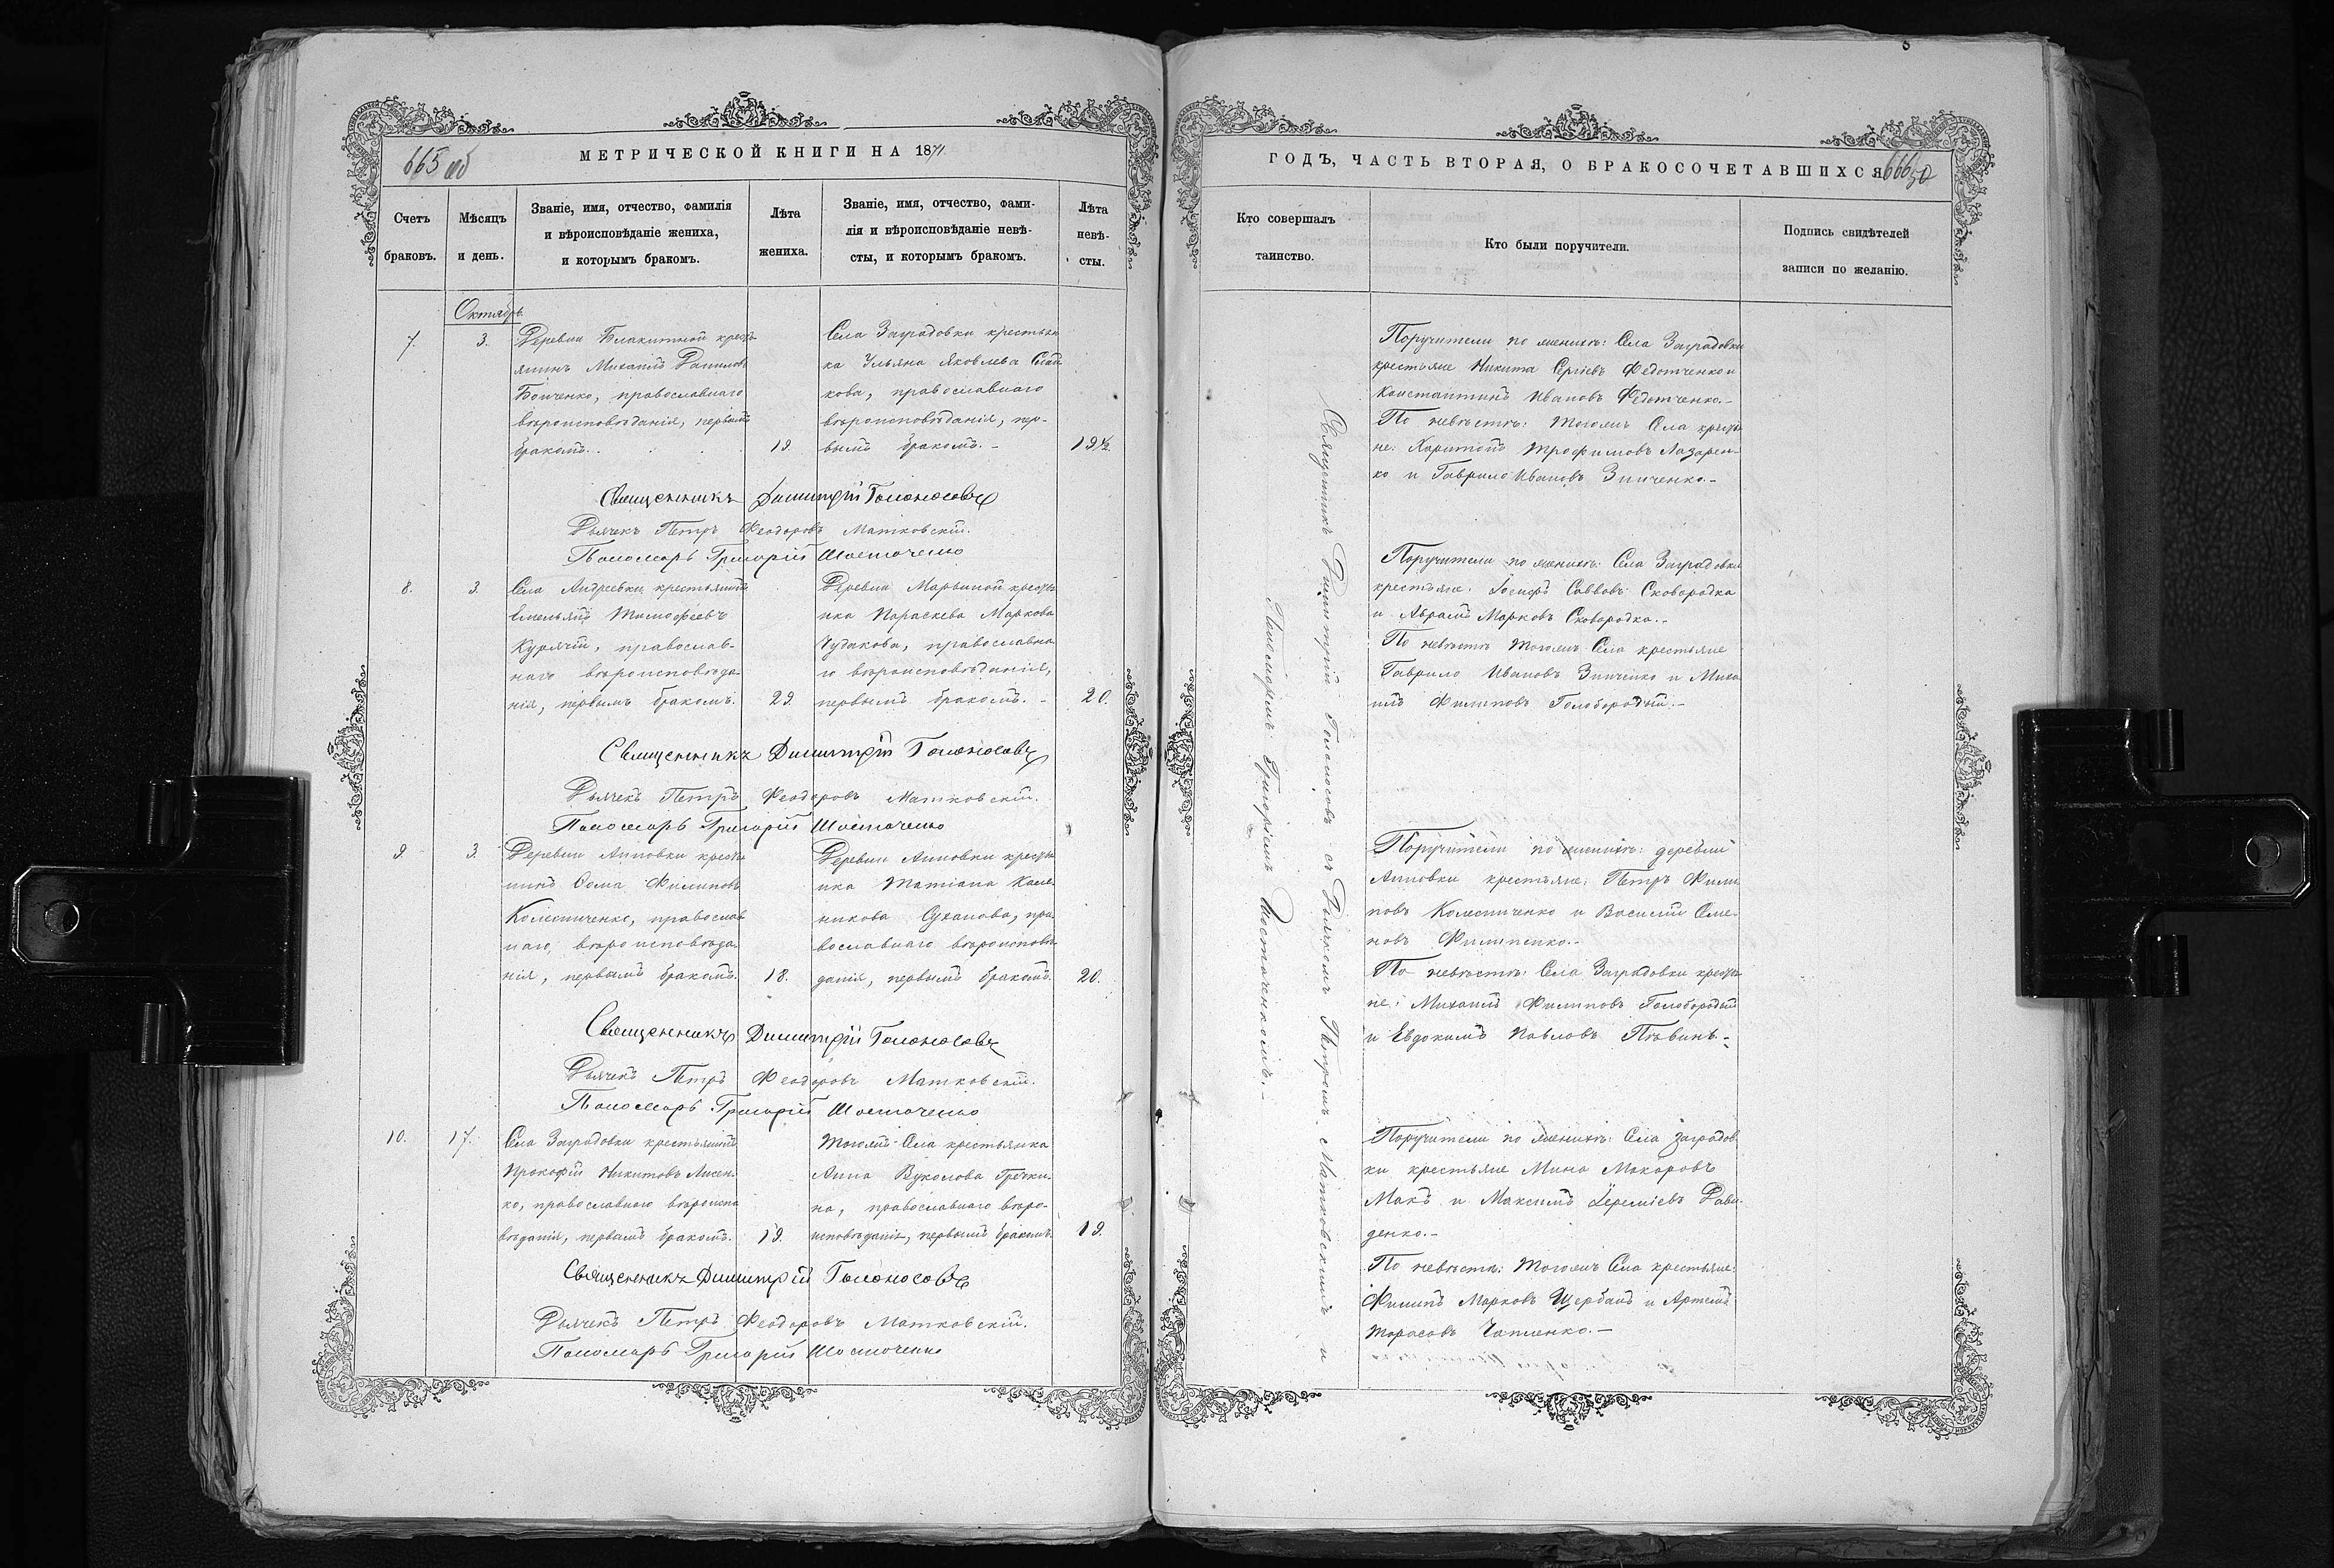 665 об
МЕТРИЧЕСКОЙ КНИГИ НА 1871
Счетъ браковъ.
Мѣсяцъ и день.
Званіе, имя, отчество, фамилія
и вѣроисповѣданіе жениха,
и которымъ бракомъ.
Лѣта
жениха.
Званіе, имя, отчество, фами-
лія и вѣроисповѣданіе невѣ-
сты, и которымъ бракомъ.
Лѣта
невѣ-
сты.
Октябрь
7.
3.
Деревни Блакитной кресть
янинъ Михаилъ Даниловъ
Бойченко, православнаго
вѣроисповѣданія, первымъ
бракомъ.
19.
Села Заградовки крестьян
ка Ульяна Яковлева Слад
кова, православнаго
вѣроисповѣданія, пер-
вымъ бракомъ.-
19½.
Священникъ Димитрій Голоносовъ
Дьячекъ Петръ Феодоровъ Матковскій.
Пономарь Григорій Шостаченко
8.
3.
Села Андреевки крестьянинъ
Емельянъ Тимофеевъ
Курячій, православ-
наго вѣроисповѣда
нія, первымъ бракомъ.
29.
Деревни Марьиной кресть
нка Параскева Маркова
Чудакова, православна
го вѣроисповѣданія,
первымъ бракомъ.-
20.
Священникъ Димитрій Голоносовъ
Дьячекъ Петръ Феодоровъ Матковскій.
Пономарь Григорій Шостаченко
9.
3.
Деревни Анновки кресть
нинъ Ѳома Филиповъ
Колесниченко, православ
наго, вѣроисповѣда
нія, первымъ бракомъ.
18.
Деревни Анновки кресть
нка Татіана Кале-
никова Суханова, пра
вославнаго вѣроисповѣ
данія, первымъ бракомъ.
20.
Священникъ Димитрій Голоносовъ
Дьячекъ Петръ Феодоровъ Матковскій.
Пономарь Григорій Шостаченко
10.
17.
Села Заградовки крестьянинъ
Прокофій Никитовъ Лисен-
ко, православнаго вѣроиспо
вѣданія, первымъ бракомъ.
19.
Тогожъ Села крестьянка
Анна Вуколова Гречки-
на, православнаго вѣро-
исповѣданія, первымъ бракомъ.
19.
Священникъ Димитрій Голоносовъ
Дьячекъ Петръ Феодоровъ Матковскій.
Пономарь Григорій Шостаченко
ГОДЪ, ЧАСТЬ ВТОРАЯ, О БРАКОСОЧЕТАВШИХСЯ
666 50
Кто совершалъ
таинство.
Кто были поручители.
Подпись свидѣтелей
записи по желанію.
Священникъ Димитрій Голоносовъ съ Дьячкомъ Петромъ Матковскимъ и
Пономаремъ Григоріемъ Шостаченкомъ.-
Поручители по женихѣ: Села Заградовки
крестьяне Никита Сергіевъ Федотченко и
Константинъ Ивановъ Федотченко.-
По невѣстѣ: Тогожъ Села крестья
не: Харитонъ Трофимовъ Лазарен-
ко и Гаврило Ивановъ Зинченко.-
Поручители по женихѣ: Села Заградовки
крестьяне: Іосифъ Саввовъ Сковородка
и Аврамъ Марковъ Сковородка.-
По невѣстѣ Тогожъ Села крестьяне
Гаврило Ивановъ Зинченко и Миха
илъ Филиповъ Голобородый.-
Поручители по женихѣ: деревни
Анновки крестьяне: Петръ Фили
повъ Колесниченко и Василій Семе-
новъ Филипенко.-
По невѣстѣ: Села Заградовки крестья
не: Михаилъ Филиповъ Голобородый
и Евдокимъ Павловъ Пѣвинъ.-
Поручители по женихѣ: Села Заградов
ки крестьяне Мина Макаровъ
Макъ и Максимъ Іереміевъ Дави-
денко.-
По невѣстѣ: Тогожъ Села крестьяне:
Филипъ Марковъ Щербань и Артемъ
Тарасовъ Чапленко.-